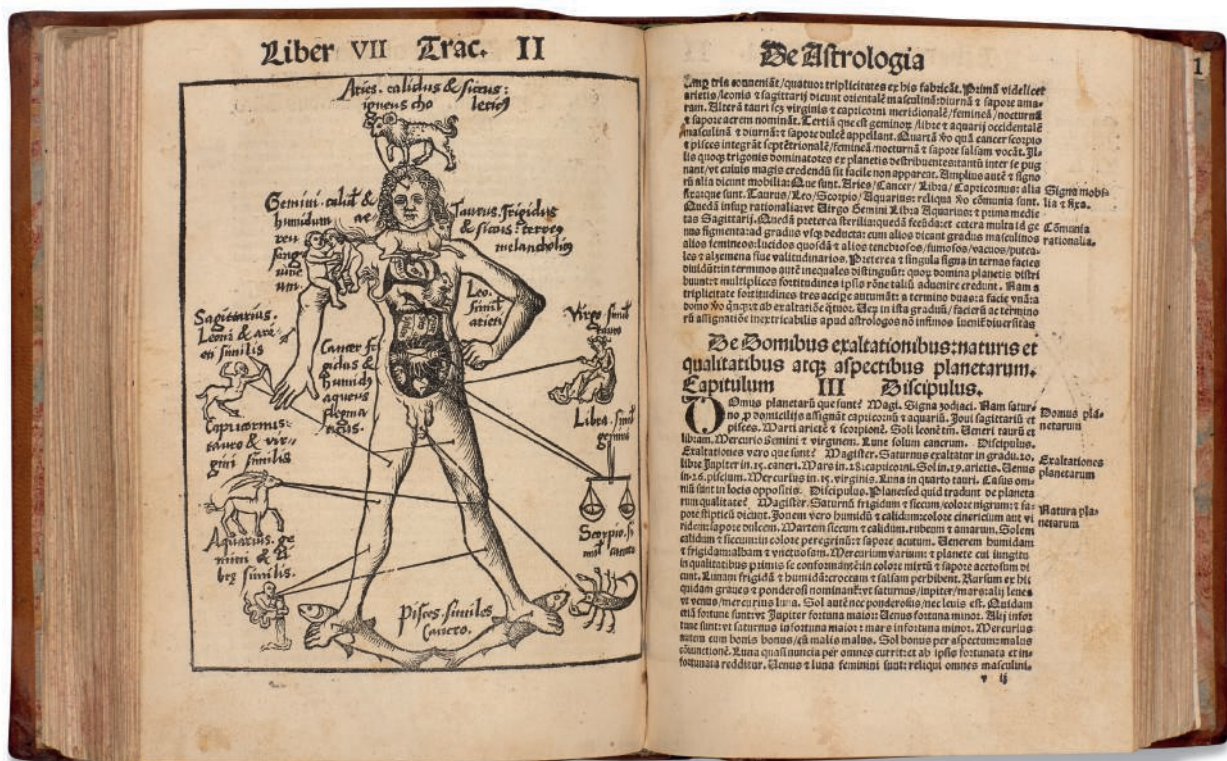 Liber VII Trac. II
Aries. calidus & siccus:
igneus cho lericꝰ
Gemini. calid &
humidum ae
reu
sang
uine
um.
Taurus. frigidus
& siccus: terreꝰ
melancholicꝰ
Leo.
simil
arieti
Sagittarius.
Leoni & arie
ti similis
Cancer fri
gidus &
humidꝰ
aqueus
flegma
ticus.
Virgo. simil
tauro
Capricornus:
tauro & vir-
gini similis
Libra. simil
geminis
Aquarius. ge
mini & li
bre similis.
Scorpio. si
mil cancro
Pisces. similes
Cancro.
De Astrologia
1
tria conueniāt/quatuor triplicitates ex his fabricāt. Primā videlicet
arietis/leonis ⁊ sagittarij dicunt orientalē masculinā: diurnā ⁊ sapore ama-
ram. Alterā tauri scꝫ virginis ⁊ capricorni meridionalē/femineā/nocturnā
⁊ sapore acrem nomināt. Tertiā que est geminoꝝ/libre ⁊ aquarij occidentalē
masculinā ⁊ diurnā: ⁊ sapore dulcē appellant. Quartā v̄o quā cancer scorpio
⁊ pisces integrāt septētrionalē/femineā/nocturnā ⁊ sapore salsam vocāt. Il-
lis quoqꝫ trigonis dominatores ex planetis destribuentes: tantū inter se pug
nant/vt cuiuis magis credendū sit facile non apparent. Amplius autē ⁊ signo
rū alia dicunt mobilia: Que sunt. Aries/Cancer/Libra/Capricornus: alia
fixa: que sunt. Taurus/Leo/Scorpio/Aquarius: reliqua v̄o cōmunia sunt.
Quedā insuꝑ rationalia: vt Uirgo Gemini Libra Aquarius: ⁊ prima medie
tas Sagittarij. Quedā preterea sterilia: quedā fecūda: et cetera multa id ge
nus figmenta: ad gradus vsqꝫ deducta: cum alios dicant gradus masculinos
alios femineos: lucidos quosdā ⁊ alios tenebrosos/fumosos/vacuos/putea-
les ⁊ alyemena siue valitudinarios. Preterea ⁊ singula signa in ternas facies
diuidūt: in terminos autē inequales distinguūt: quoꝝ domina planetis distri
buunt: ⁊ multiplices fortitudines ipsis rōne taliū aduenire credunt. Nam a
triplicitate fortitudines tres accipe autumāt: a termino duas: a facie vnā: a
domo v̄o qnqꝫ: et ab exaltatiōe qtuor. Ueꝝ in ista graduū/facierū ac termino
rū assignatiōe inextricabilis apud astrologos nō infimos diuersitas
Signa mobi-
lia ⁊ fixa.
Cōmunia
rationalia.
De Domibus exaltationibus: naturis et
qualitatibus atqꝫ aspectibus planetarum.
Capitulum III Discipulus.
DOmus planetarū que sunt? Magi. Signa zodiaci. Nam satur-
no ꝓ domicilijs assignāt capricornū ⁊ aquariū. Joui sagittariū et
pisces. Marti arietē ⁊ scorpionē. Soli leonē tm̄. Ueneri taurū et
libram. Mercurio Gemini ⁊ virginem. Lune solum cancrum. Discipulus.
Exaltationes vero que sunt? Magister. Saturnus exaltatur in gradu. 20.
libre Jupiter in. 15. cancri. Mars in. 28. capricorni. Sol in. 19. arietis. Uenus
in. 26. piscium. Mercurius in. 15. virginis. Luna in quarto tauri. Casus om-
niū sunt in locis oppositis. Discipulus. Plane: sed quid tradunt de planeta
rum qualitate? Magister. Saturnū frigidum ⁊ siccum/colore nigrum: ⁊ sa-
pore stipticū dicunt. Jouem vero humidū ⁊ calidum: colore cinericium aut vi
ridem: sapore dulcem. Martem siccum ⁊ calidum. rubeum ⁊ amarum. Solem
calidum ⁊ siccum: in colore peregrinū: ⁊ sapore acutum. Uenerem humidam
⁊ frigidam: albam ⁊ vnctuosam. Mercurium varium: ⁊ planete cui iungitur
in qualitatibus primis se conformantē: in colore mixtū ⁊ sapore acetosum di
cunt. Lunam frigidā ⁊ humidā: croceam ⁊ salsam perhibent. Rursum ex his
quidam graues ⁊ ponderosi nominant: vt saturnus/iupiter/mars: alij leues
vt venus/mercurius luna. Sol autē nec ponderosus/nec leuis est. Quidam
etiā fortune sunt: vt Jupiter fortuna maior: Uenus fortuna minor. Alij infor
tune sunt: vt saturnus infortuna maior: mars infortuna minor. Mercurius
autem cum bonis bonus/cū malis malus. Sol bonus per aspectum: malus
coniunctionē. Luna quasi nuncia per omnes currit: et ab ipsis fortunata et in-
fortunata redditur. Uenus ⁊ luna feminini sunt: reliqui omnes masculini.
Domus pla-
netarum
Exaltationes
planetarum
Natura pla-
netarum
v ij